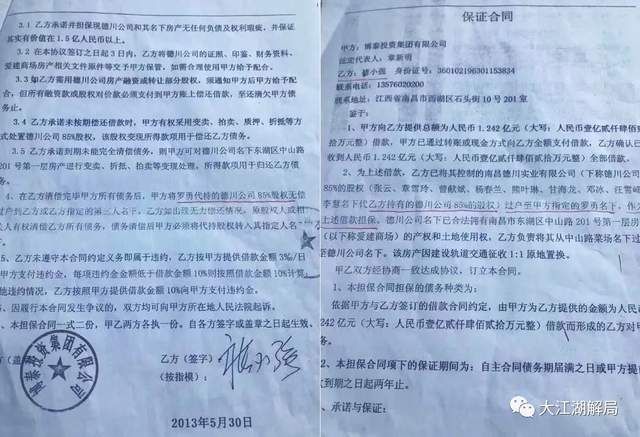 3.1 乙方承诺并担保现德川公司和其名下房产无任何负债及权利瑕疵，并保证
其实有价值在1.5亿人民币以上。
3.2 在本协议签订之日起3日内，乙方将德川公司的证照、印鉴、财务资料、
爱建商场房产相关文件原件等交予甲方保管，如需合理使用甲方给予配合。
3.3 如乙方需用德川公司房产融资或转让部分股权，须通知甲方后甲方给予配
合，但所有融资款或股权对价款必须支付到甲方账上偿还借款，至还清欠甲方债
务止。
3.4 乙方承诺未按期偿还借款时，甲方有权采用变卖、拍卖、质押、折抵等方
式处置德川公司85%股权，该股权变现所得款项用于偿还乙方债务。
3.5 乙方承诺到期未能完全清偿债务，则甲方可对德川公司名下东湖区中山路
201号第一层房产进行变卖、折抵、拍卖等变现处理，所得款项用于归还乙方债
务。
4、在乙方清偿完毕甲方所有债务后，甲方将罗勇代持的德川公司85%股权无偿
过户到乙方或乙方指定的第三人名下，乙方如出现无力偿还情况，原股权人或相
关人有权清偿乙方所有债务，债务清偿后甲方必须将代持股权转入其指定人名
下。
5、乙方未遵守本合同约定义务即属于违约，乙方按甲方提供借款金额3%/日
甲方支付违约金，每项违约金金额低于借款金额10%则按照借款金额10%计算；
他违约情况，乙方按照甲方提供借款金额10%向甲方支付违约金。
6、因履行本合同发生争议的，双方均可向甲方所在地人民法院起诉。
本担保合同一式二份，甲乙两方各执一份。自各方签字或盖章之日起生效。
乙方（签字）
（按指模）：
博泰投资集团有限公司
2013年5月30日
保证合同
甲方：博泰投资集团有限公司
法定代表人：章新明
乙方：嵇小强 身份证号：360102196301153834
联系电话：13576020200
联系地址：江西省南昌市西湖区石头街10号201室
鉴于：
1、甲方向乙方提供总额为人民币1.242亿元（大写：人民币壹亿贰仟肆佰贰
拾万元整）借款，甲方已通过转账或现金方式向乙方全额支付借款，乙方确认已
收到人民币1.242亿元（大写：人民币壹亿贰仟肆佰贰拾万元整）全部借款。
2、为上述借款，乙方已将其控制的南昌德川实业有限公司（下称德川公司）
85%的股权（张云、章雪玲、曾献斌、杨春兰、熊叶琳、甘海龙、邓冰、汪雪
李慧名下代乙方持有的德川公司85%的股权）过户至甲方指定的罗勇名下，作为
上述借款担保。德川公司名下已合法拥有南昌市东湖区中山路201号第一层房
（以下称爱建商场）的产权和土地使用权，乙方负责将其从中山路菜场名下过
至德川公司名下。该房产因建设轨道交通收1:1原地置换。
甲乙双方经协商一致达成协议，订立本合同。
1、本担保合同担保的债务种类为：
依据甲方与乙方签订的借款合同约定，由甲方为乙方提供的金额为人民
242亿元（大写：人民币壹亿贰仟肆佰贰拾万元整）借款而形成的乙方对甲
务。
2、本担保合同项下的保证期间为：自主合同债务期届满之日或甲方提
到期之日起两年止。
、承诺与保证：
大江湖解局